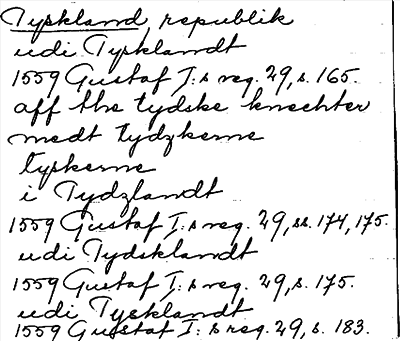 Tyskland republik
udi Typklandt
1559 Gustaf I:s reg. 29, s. 165.
aff the tydske knechter
medt tydzkerne
tyskerne
i Tydzlandt
1559 Gustaf I:s reg. 29, ss. 174, 175.
udi Tydsklandt
1559 Gustaf I:s reg. 29, s. 175.
udi Tysklandt
1559 Gustaf I:s reg. 29, s. 183.